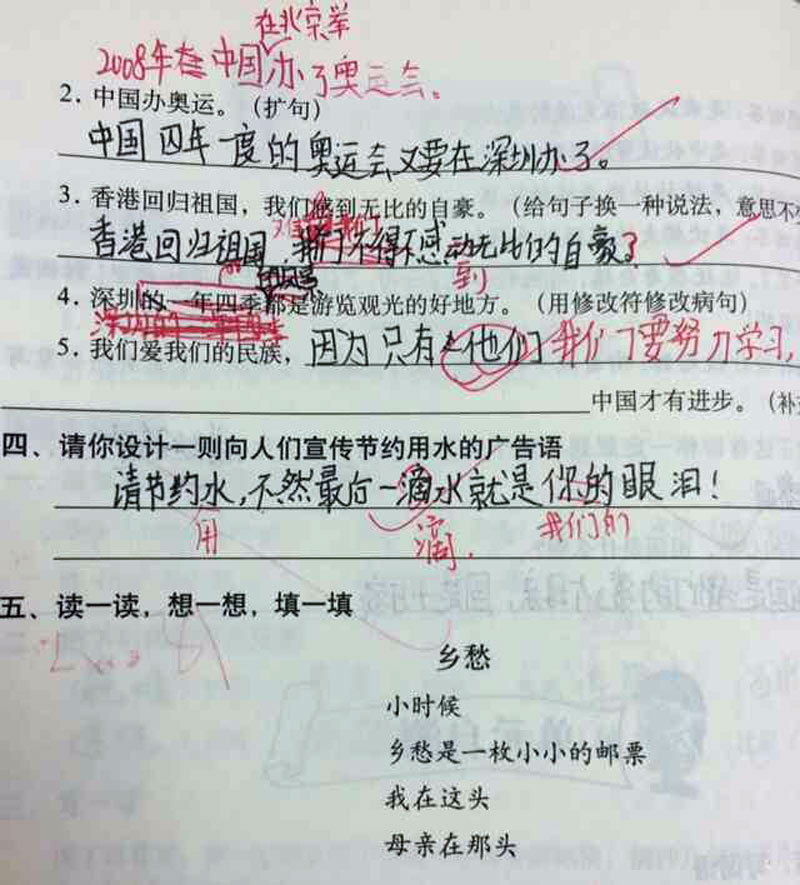 在北京举
2008年在中国办了奥运会。
2. 中国办奥运。（扩句）
中国四年一度的奥运会又要在深圳办了。
3. 香港回归祖国，我们感到无比的自豪。（给句子换一种说法，意思不
香港回归祖国 我们不得不感动无比的自豪了
到
4. 深圳的一年四季都是游览观光的好地方。（用修改符修改病句）
5. 我们爱我们的民族，因为只有他们 我们要努力学习，
中国才有进步。（补
四、请你设计一则向人们宣传节约用水的广告语
请节约水，不然最后一滴水就是你的眼泪！
用 滴 我们的
五、读一读，想一想，填一填
乡愁
小时候
乡愁是一枚小小的邮票
我在这头
母亲在那头